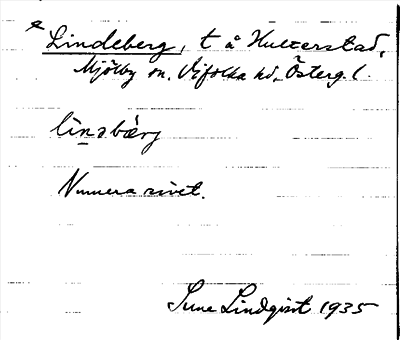 * Lindeberg, t å Hulterstad,
Mjölby sn. Vifolka hd. Österg. l.
linəbærj
Numera rivet.
Sune Lindqvist 1935